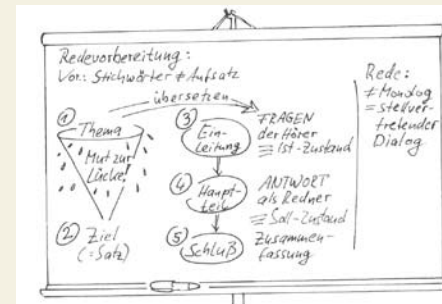 Redevorbereitung:
Vor.: Stichwörter ≠ Aufsatz
übersetzen
① Thema
Mut zur
Lücke!
② Ziel
(=Satz)
③ Ein-
leitung
④ Haupt-
teil
⑤ Schluß
FRAGEN
der Hörer
≙ Ist-Zustand
ANTWORT
als Redner
≙ Soll-Zustand
Zusammen-
fassung
Rede:
≠ Monolog
= stellver-
tretender
Dialog